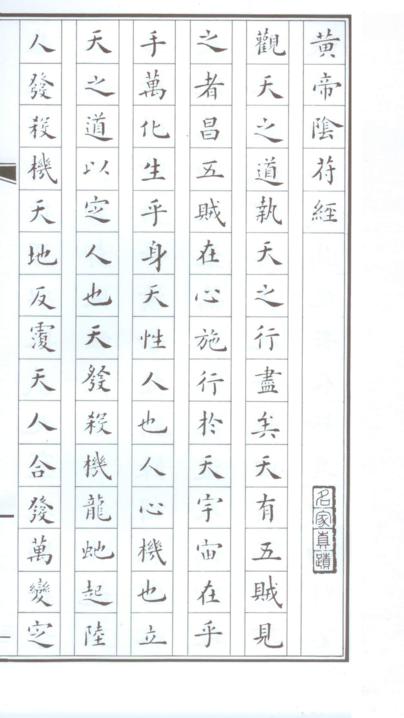 黄帝陰符經
名家真蹟
觀天之道執天之行盡矣天有五賊見
之者昌五賊在心施行於天宇宙在乎
手萬化生乎身天性人也人心機也立
天之道以定人也天發殺機龍虵起陸
人發殺機天地反覆天人合發萬變定